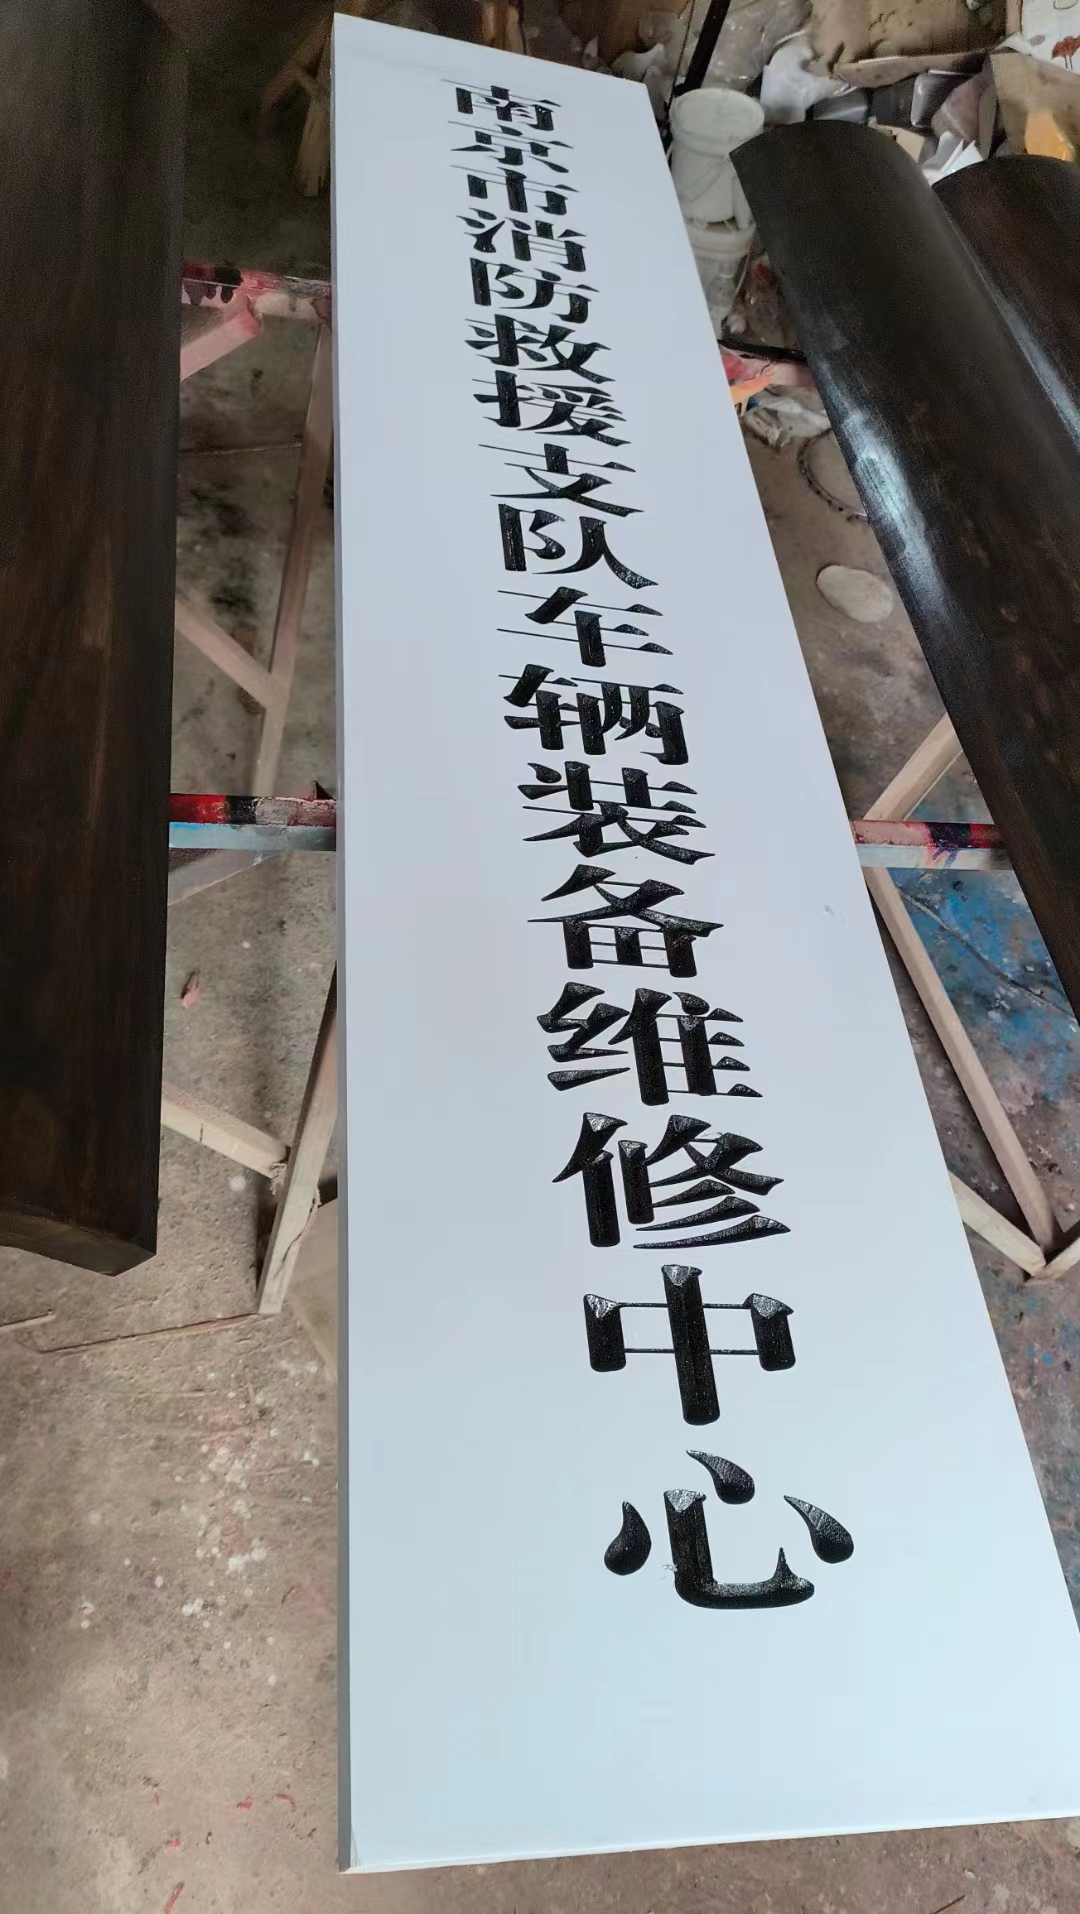 南京市消防救援支队车辆装备维修中心